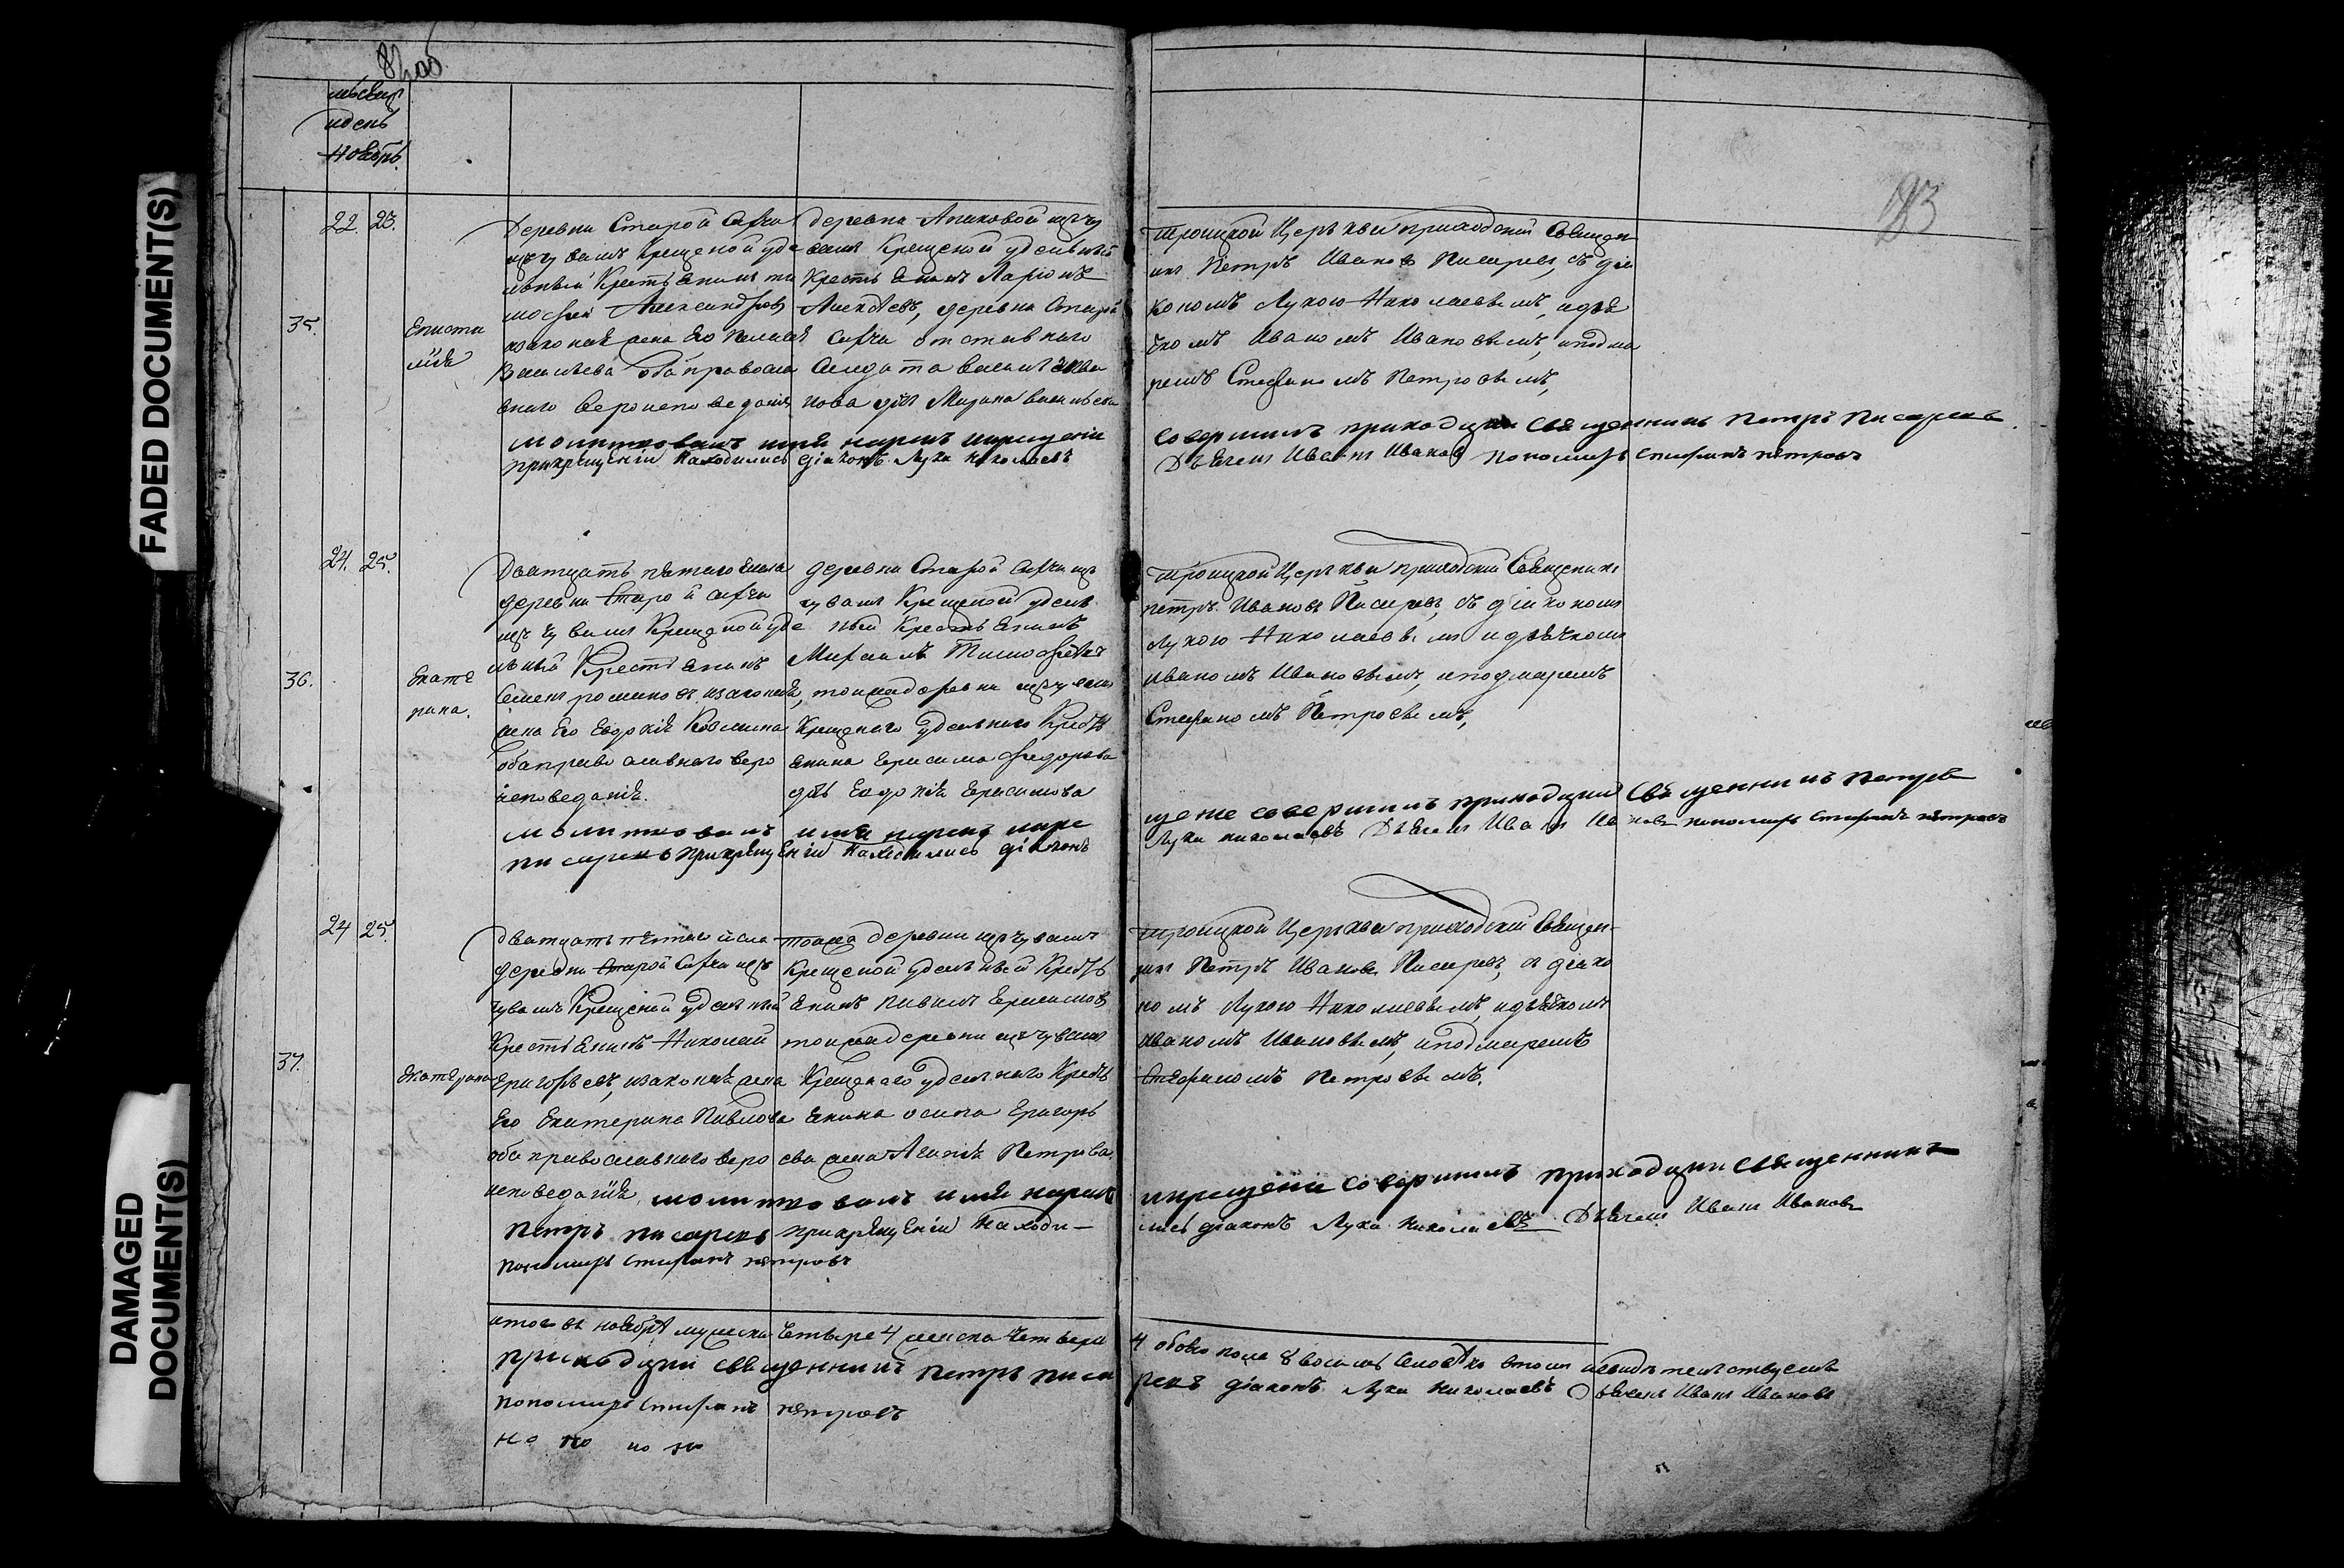 FADED DOCUMENT(S)
DAMAGED
DOCUMENT(S)
месяцъ
и день
Ноябрь.
22. 23.
35.
Деревни Старой
изъ чувашъ крещеной уде
льный Крестьянинъ Ти
мофей Александровъ
и законная жена его Пелагея
Васильева оба православ
наго вероисповедания
деревни Апаковой изъ чу
вашъ крещеной удельный
Крестьянинъ Ларіонъ
Алексѣевъ, деревни Старой
отставнаго
Салдата Василья Ива
нова дочь Марина Васильева
молитвовалъ имя нарекъ и крещеніе
при крещеніи находились діаконъ Лука Николаевъ
Троицкой Церькви приходской Священ
никъ Петръ Ивановъ Писаревъ, съ діа
кономъ Лукою Николаевымъ, и дья
чкомъ Иваномъ Ивановымъ, и понома
ремъ Стефаномъ Петровымъ,
совершилъ приходски священникъ Петръ Писаревъ
Дьячекъ Иванъ Ивановъ пономарь Стифанъ Петровъ
24. 25.
36.
Екате
рина.
Дватцать пятаго числа
деревни Старой
изъ чувашъ Крещеной уде
льный Крестьянинъ
Семенъ Романовъ и законная
жена его Евдокия Козмина
оба православнаго веро
исповедания.
деревни Старой изъ
чувашъ Крещеной удель
ный Крестьянинъ
Михаилъ Тимофеевъ
тояжъ деревни изъ чувашъ
Крещенаго Удельнаго Кресть
янина Герасима Федорова
дочь Евдокия Герасимова
молитвовалъ имя нарекъ и кре
писаревъ при крещеніи находились діаконъ
Троицкой Церькви приходский Священникъ
Петръ Ивановъ Писаревъ, съ діакономъ
Лукою Николаевымъ и дьячкомъ
Иваномъ Ивановымъ, и пономаремъ
Стефаномъ Петровымъ,
щение совершилъ приходский Священникъ Петръ
Лука Николаевъ Дьячекъ Иванъ Ивановъ пономарь Стифанъ Петровъ
24 25.
37.
Екатерина
Дватцать пятаго числа
деревни Старой изъ
чувашъ Крещеной удельный
Крестьянинъ Николай
Григорьевъ, и законная жена
его Екатерина Павлова
оба православнаго веро
исповедания
тояжъ деревни изъ чувашъ
Крещеной удельный Кресть
янинъ Павилъ Герасимовъ
тояжъ деревни изъ чувашъ
Крещенаго удельнаго Кресть
янина Осипа Григорь
ева жена Петрова
молитвовалъ имя нарекъ
Петръ писаревъ при крещеніи находи-
пономарь Стифанъ Петровъ
Троицкой Церькви приходской Священ-
никъ Петръ Ивановъ Писаревъ, съ діако
номъ Лукою Николаевымъ, и дьячкомъ
Иваномъ Ивановымъ, и пономаремъ
Стефаномъ Петровымъ.
и крещение совершилъ приходский священникъ
лись діаконъ Лука Николаевъ Дьячекъ Иванъ Ивановъ
итого въ ноябрѣ мужеска четыре 4 женска четыре
4 обоего пола 8 восемь в томъ и свидѣтельствуемъ
приходский священникъ Петръ Писа
ревъ діаконъ Лука Николаевъ Дьячекъ Иванъ Ивановъ
пономарь Стифанъ Петровъ
но но но но